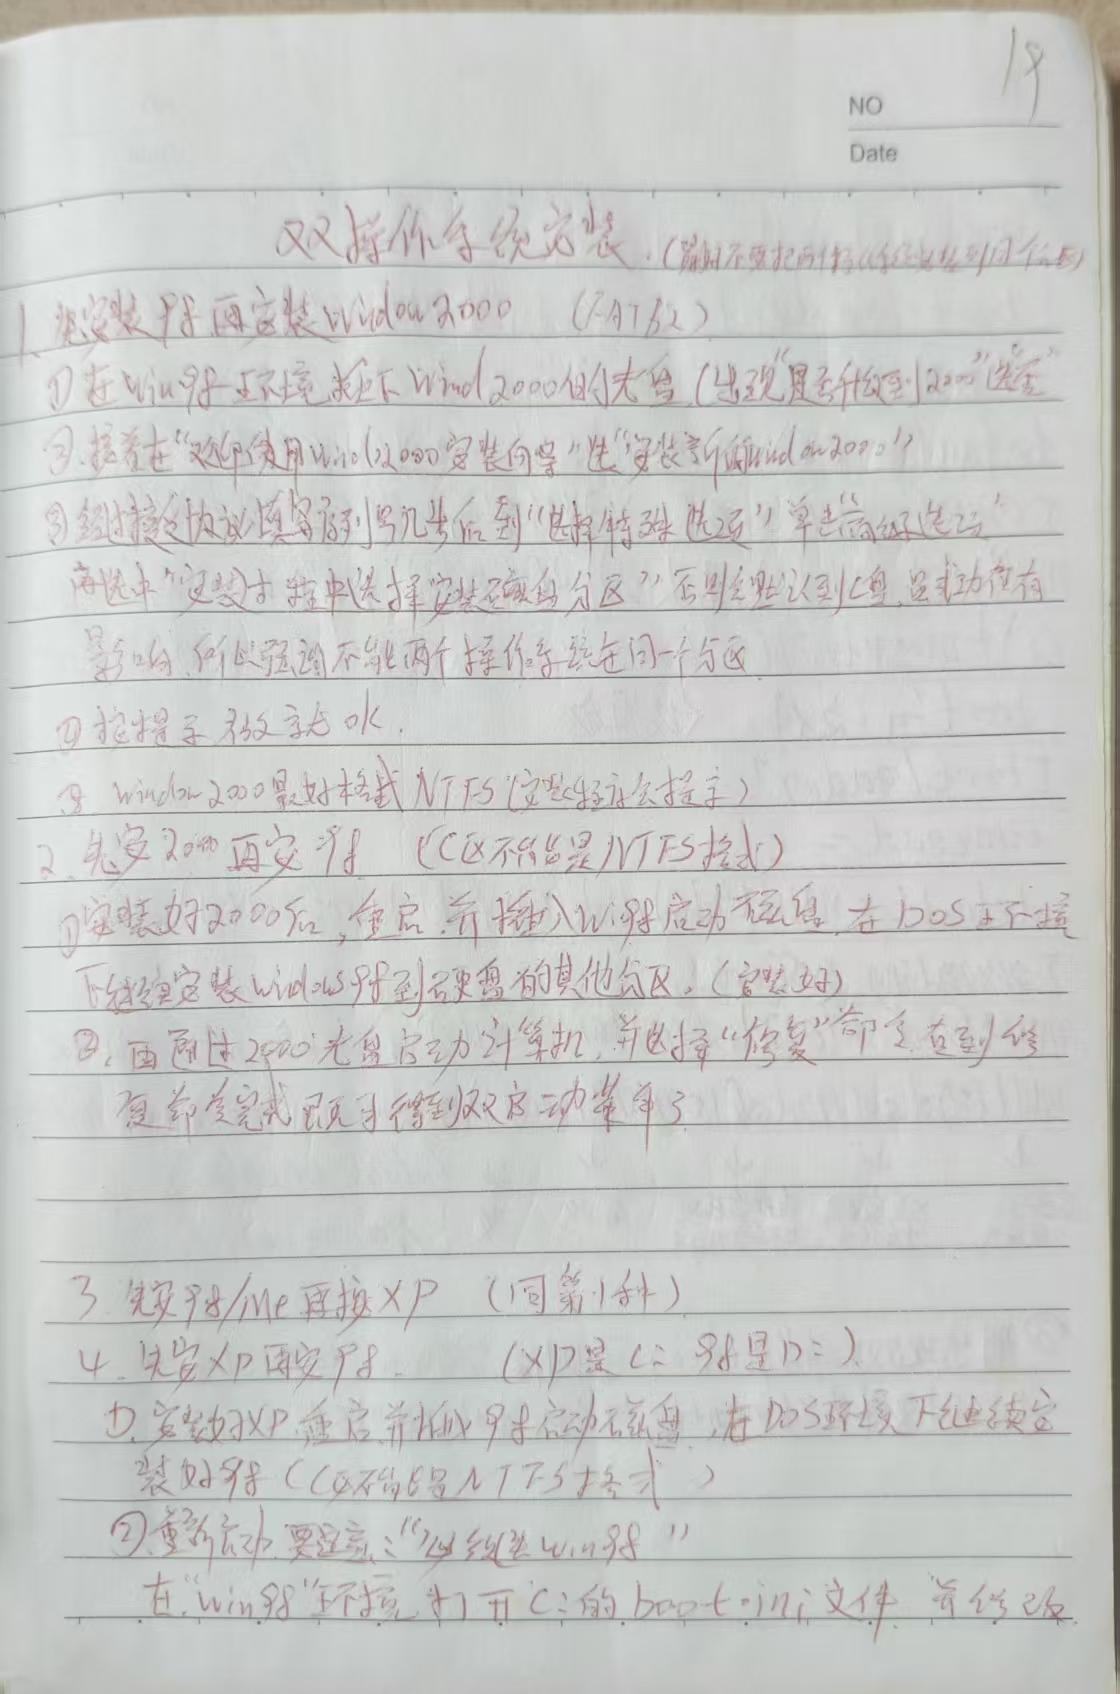 19
NO
Date
双操作系统安装.(不要把两个操作系统安装到同个区)
1、先安装98再安装Window2000 (FAT32)
①在Win98环境放下Wind2000的光盘(出现"是否升级到2000"选"否"
②.接着在"欢迎使用Wind2000安装向导"选"安装新的Window2000"
③经过接受协议填写序列号几步后到"选择特殊选项"单击"高级选项"
再选中"安装过程中选择安装硬盘分区"否则会默认到C盘,
影响,所以强调不能两个操作系统在同一个分区
④按提示就OK.
⑤ Window2000最好格式NTFS(安装会提示)
2.先安2000再安98 (C区不能是NTFS格式)
①安装好2000后,重启,并插入Win98启动磁盘,在DOS环境
下继续安装windows98到硬盘的其他分区。(安装好)
②.再通过2000光盘启动计算机,并选择"修复"命令,直到修
复命令完成既可得到双启动菜单了
3.先安98/Me再按XP (同第1种)
4.先安XP再安98. (XP是C: 98是D:)
①.安装好XP,重启并插入98启动磁盘,在DOS环境下继续安
装好98(C区不能是NTFS格式)
②.重新启动,要注意:" win98"
在"win98"环境,打开C:的boot.ini文件 并修改